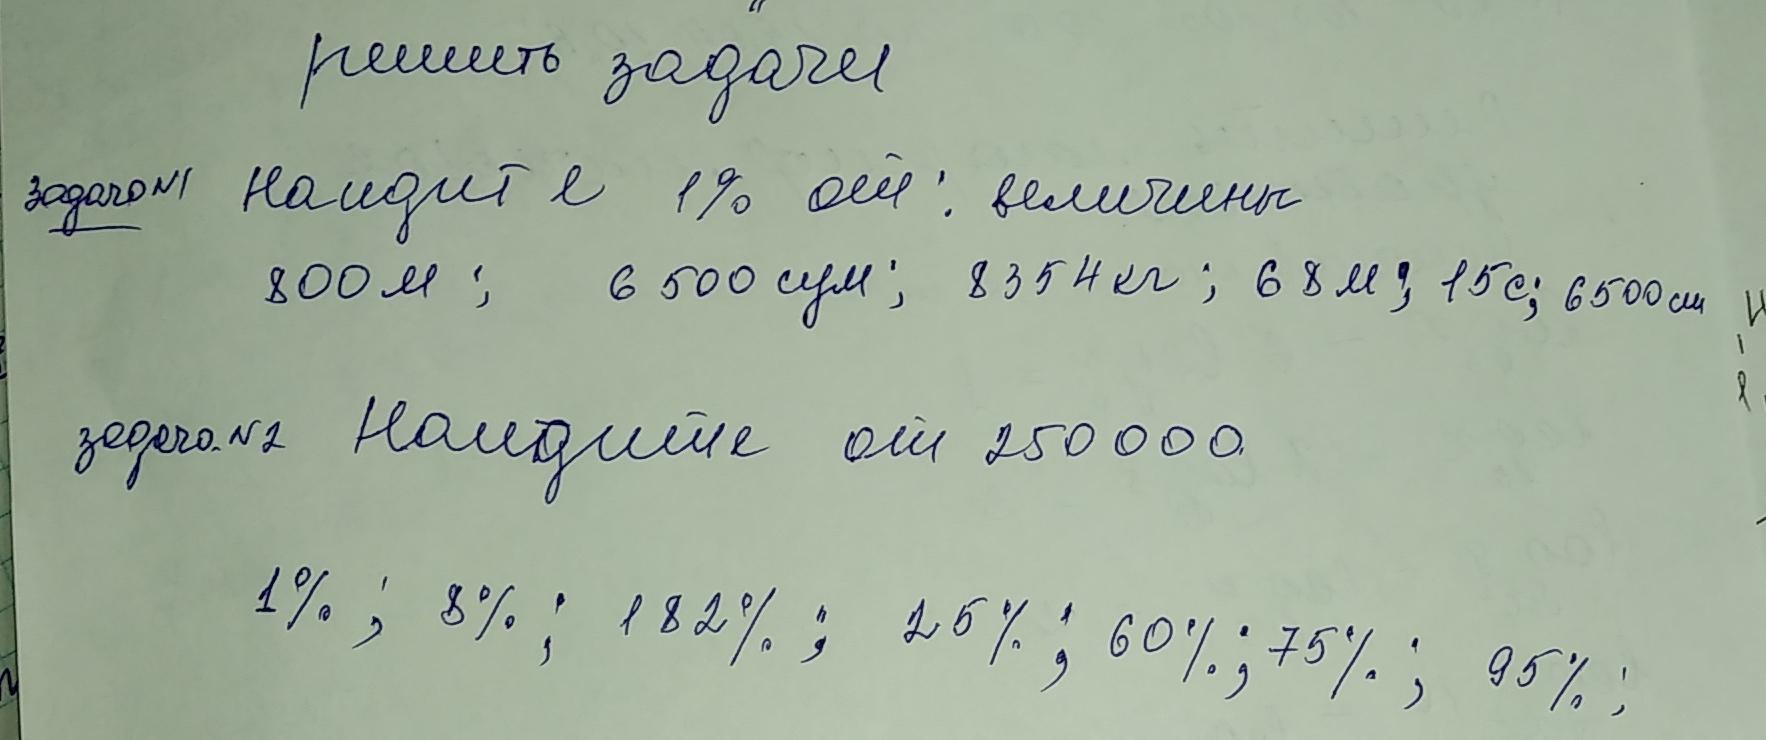 решить задачи
задача №1 Найдите 1% от: величины
800 м; 6500 сум; 8354 кг; 68 м; 15 с; 6500 см
задача №2 Найдите от 250000.
1%; 8%; 182%; 25%; 60%; 75%; 95%;